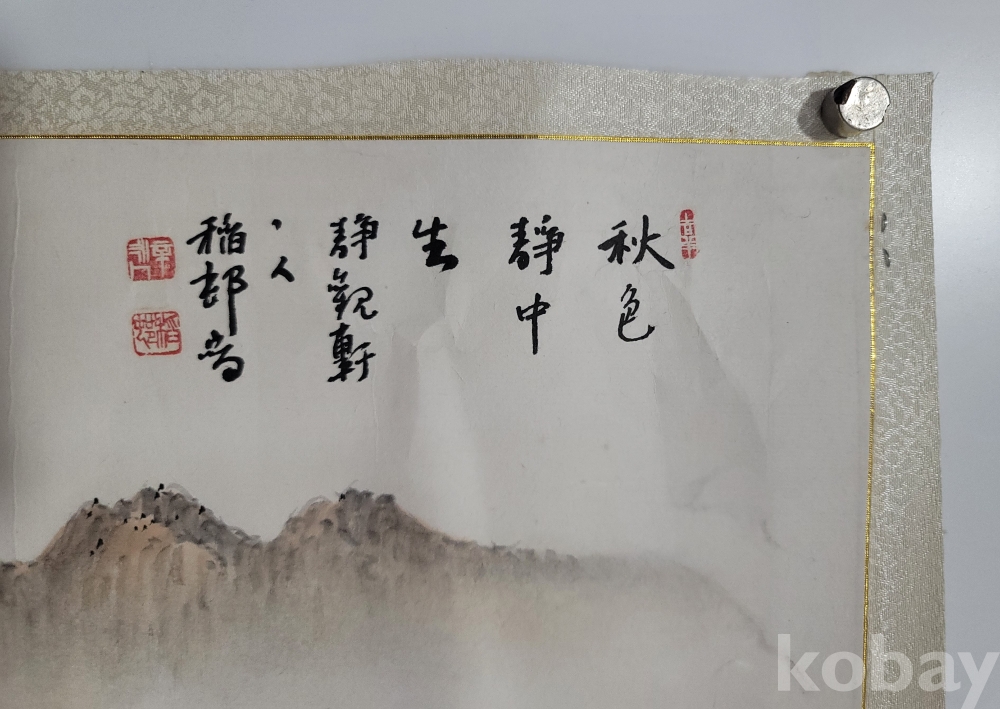 秋色
靜中
生
靜觀軒
人
稻邨
kobay